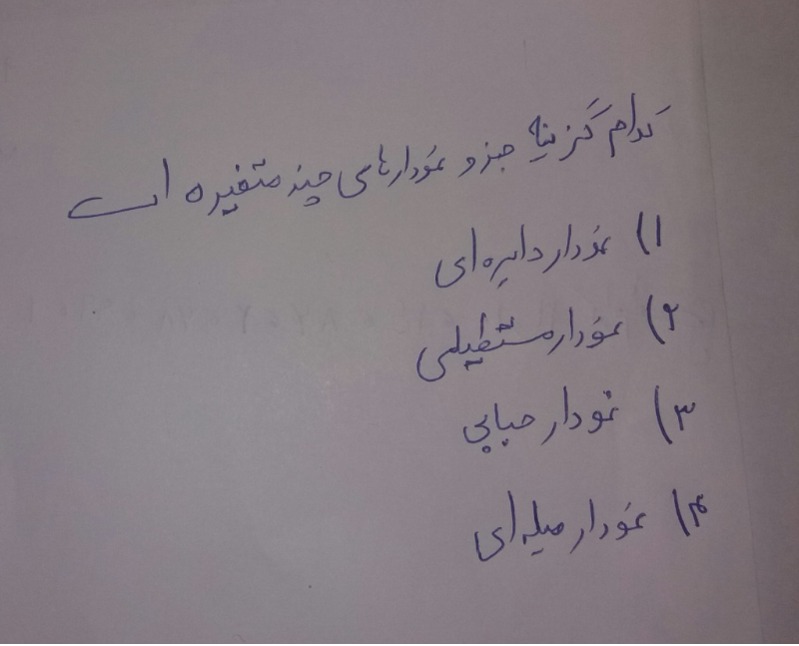 کدام گزینه جزو نمودارهای چند متغیره است
۱) نمودار دایره ای
۲) نمودار مستطیلی
۳) نمودار حبابی
۴) نمودار میله ای